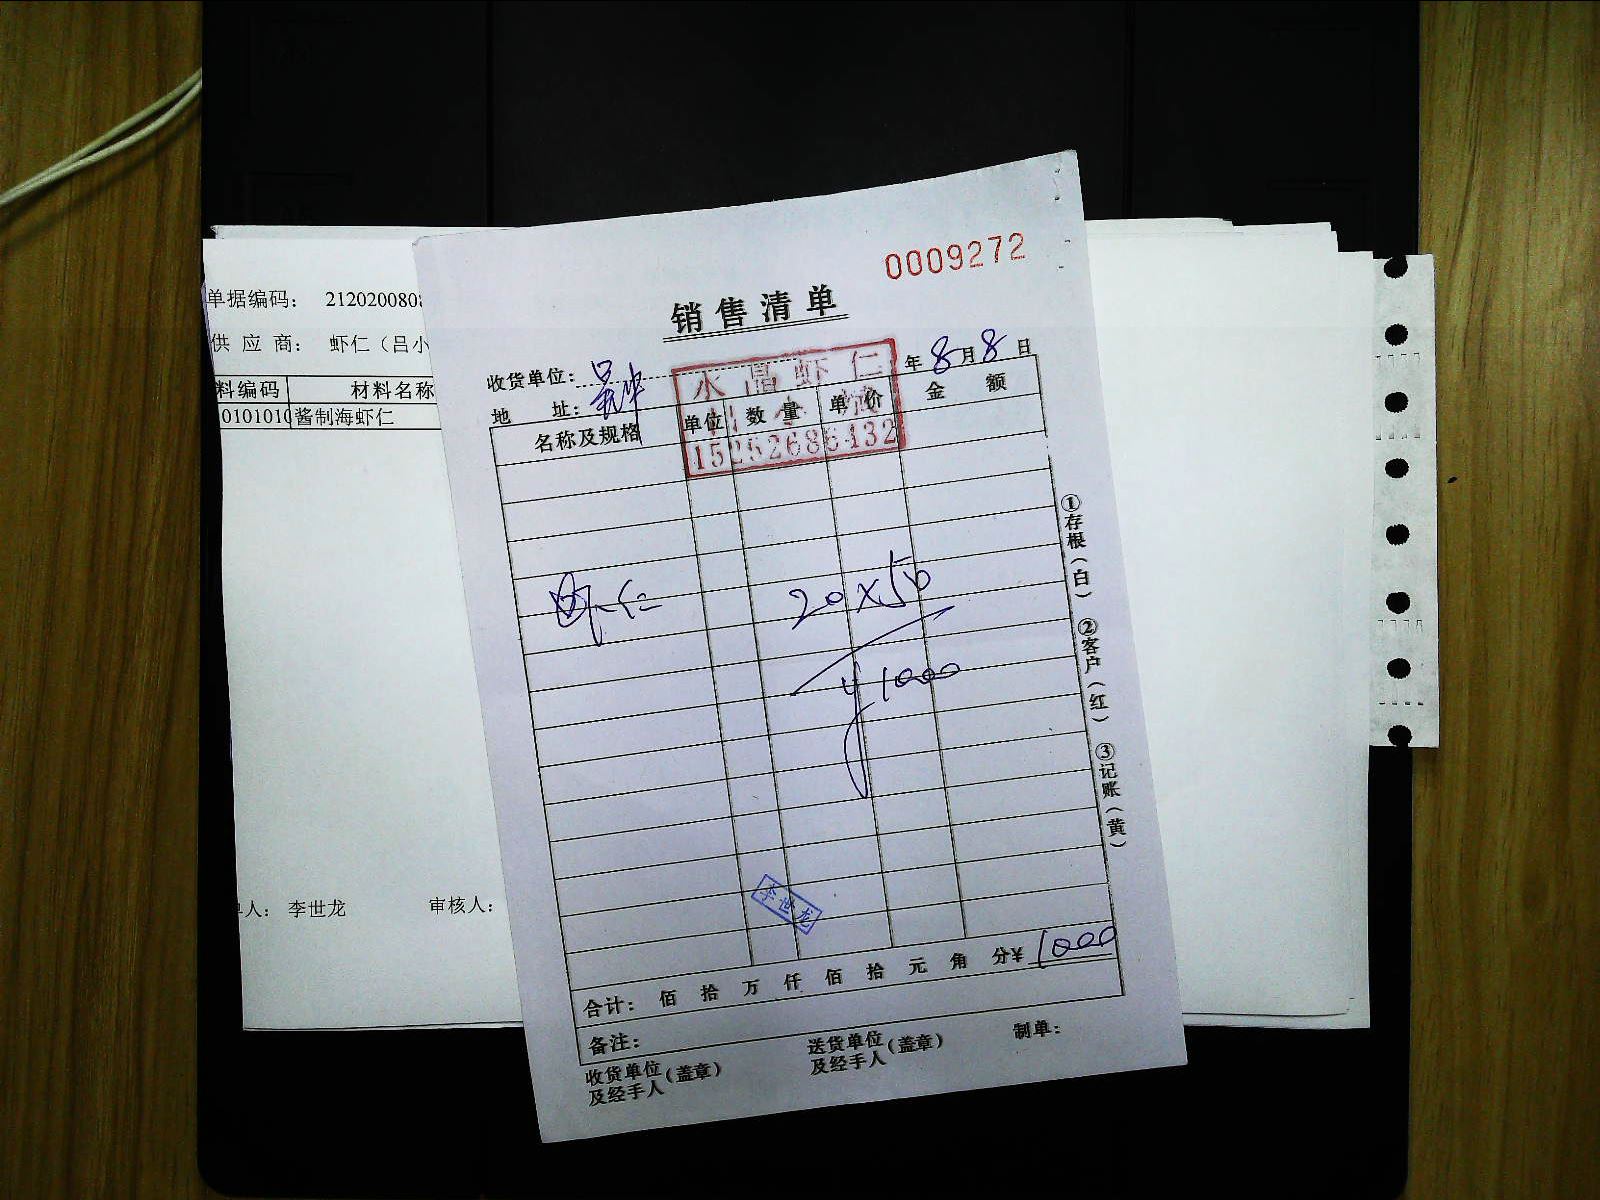 0009272
销售清单
单据编码： 212020080
供 应 商： 虾仁（吕小
料编码 材料名称
0101010 酱制海虾仁
收货单位：
年 8 月 8 日
地 址：
水晶虾仁
15252686432
名称及规格 单位 数量 单价 金额
虾仁 20×50
¥1000
李世龙
合计： 佰 拾 万 仟 佰 拾 元 角 分¥ 1000
备注：
收货单位及经手人（盖章） 送货单位及经手人（盖章） 制单：
①存根（白） ②客户（红） ③记账（黄）
人： 李世龙 审核人：